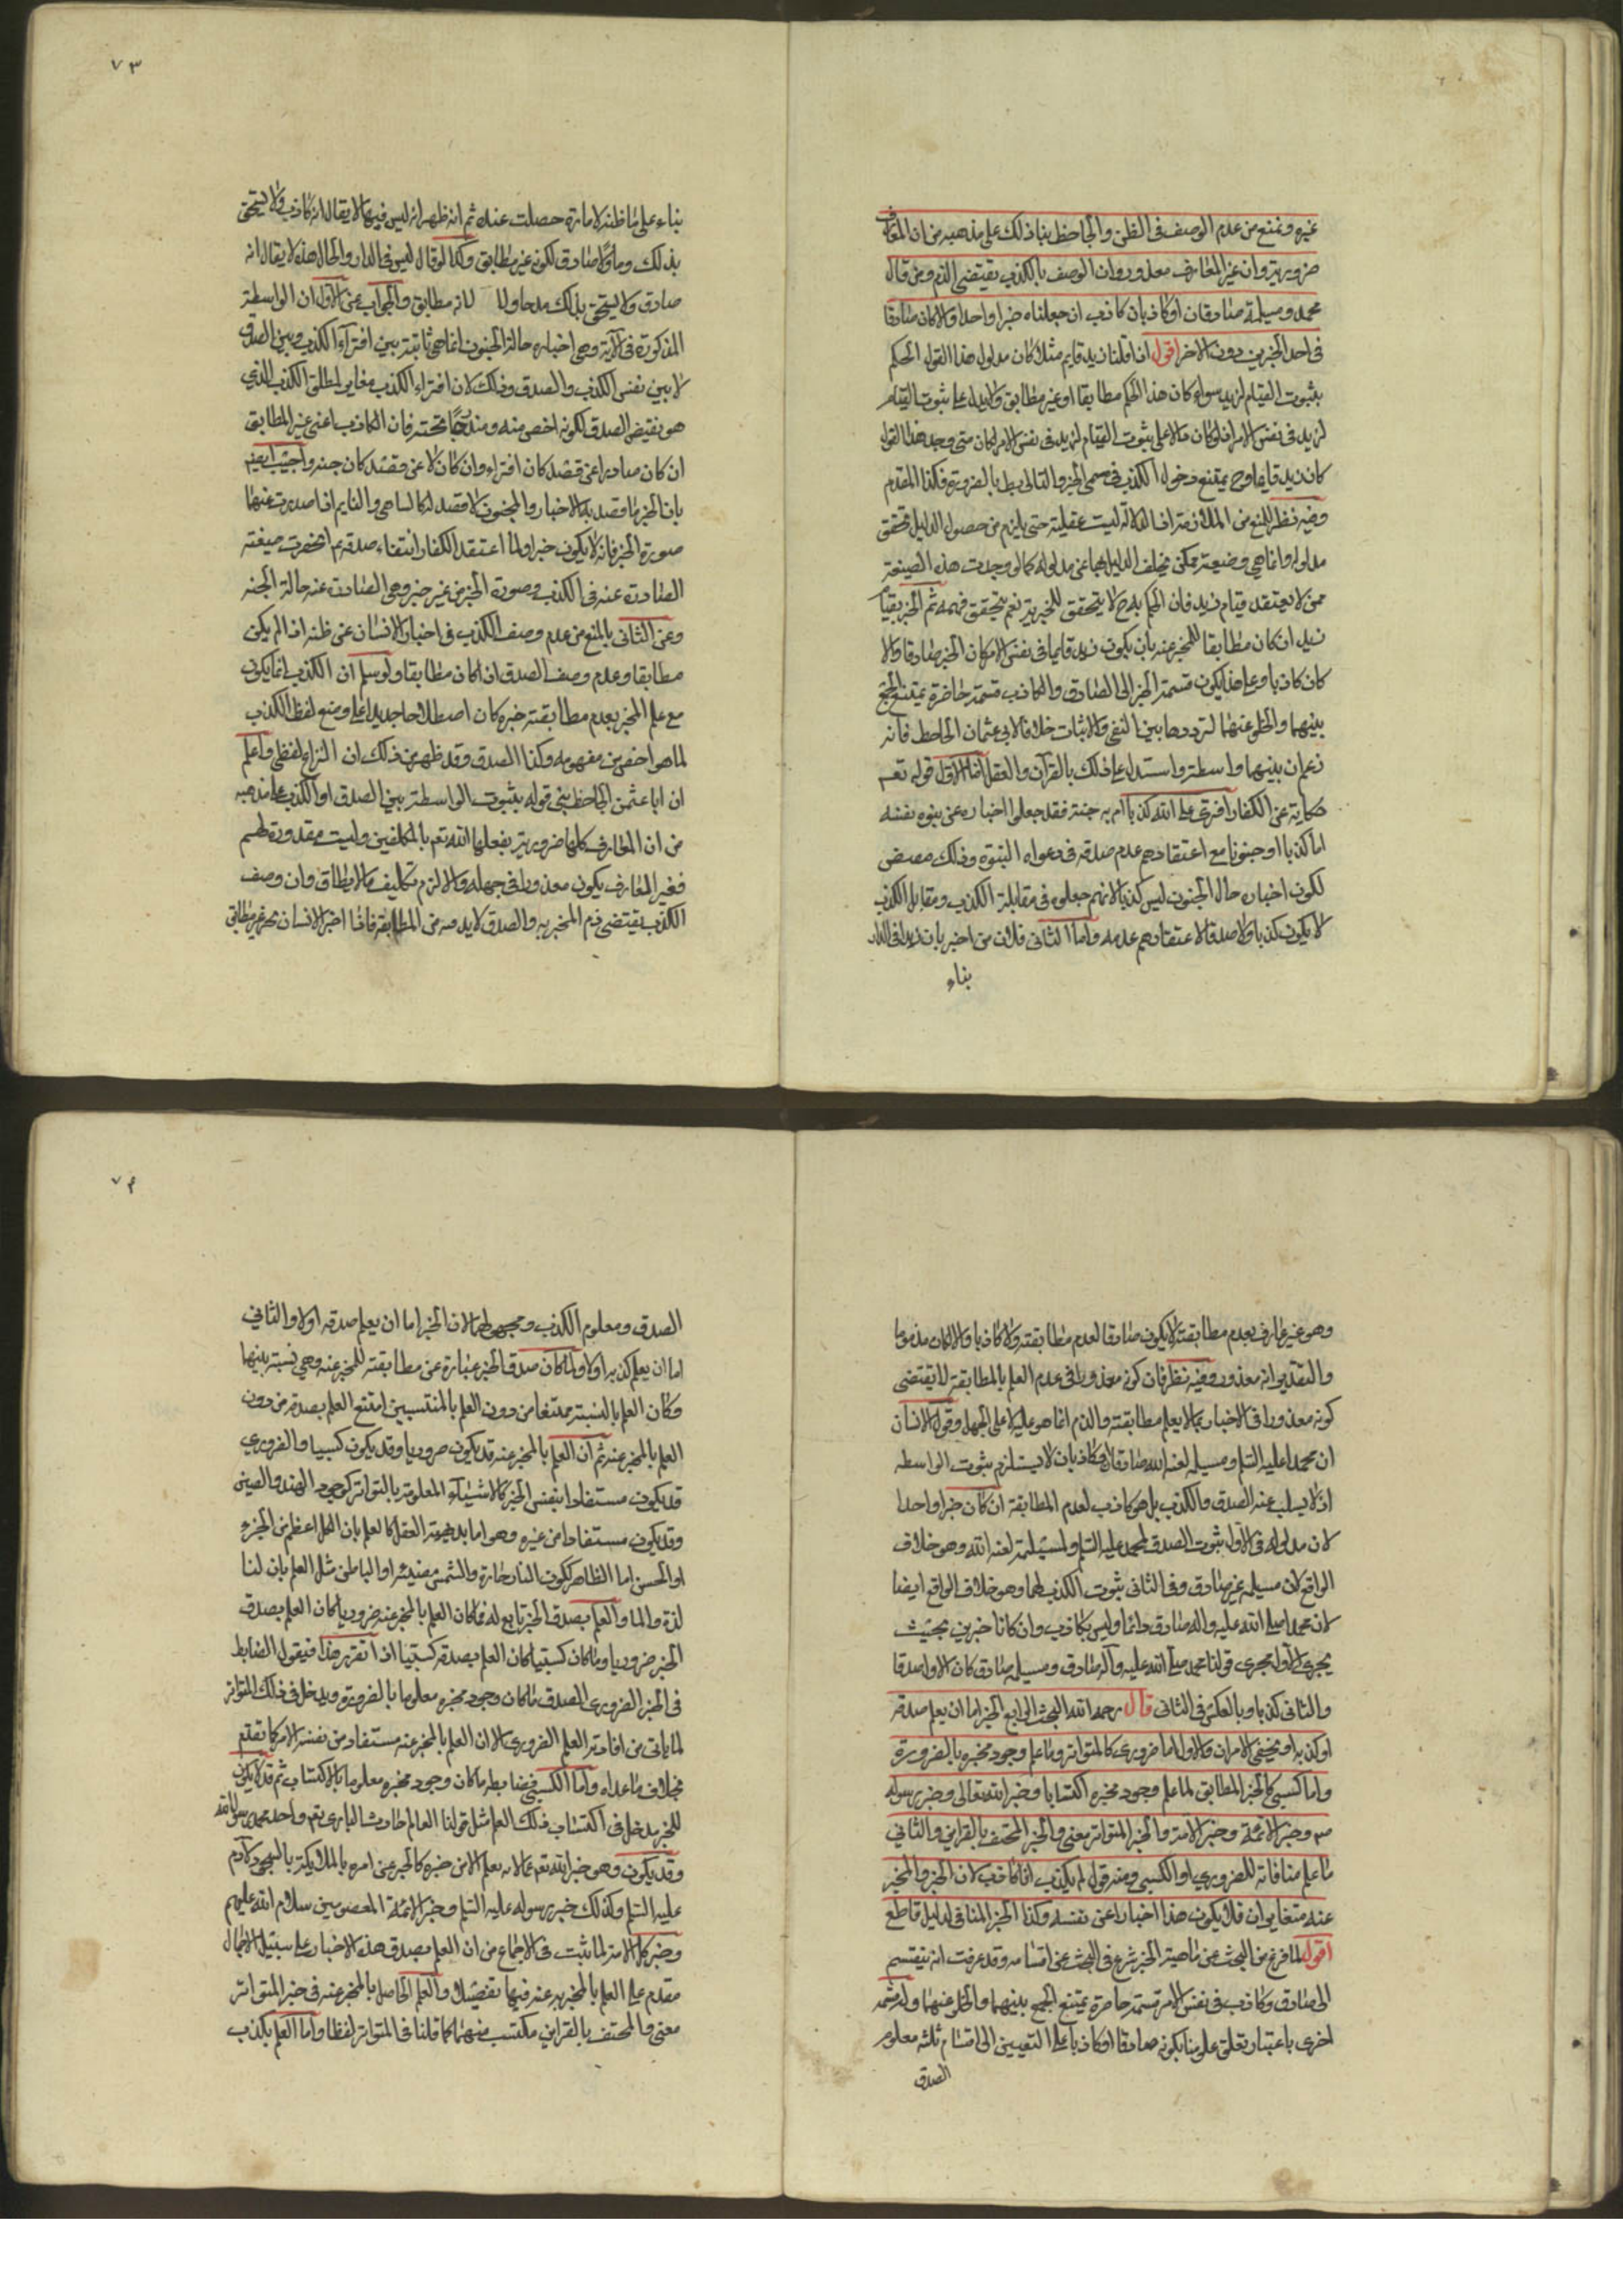 غيره ونمنع من عدم الوصف فى الظن والجاحظ بنا ذلك على مذهبه من ان المعارف
ضرورية وان غير العارف معذور وان الوصف بالكذب يقتضى الذم ومن قال
محمد ومسيلمة صادقان او كاذبان كاذب ان جعلناه خبرا واحدا والا كان صادقا
فى احد الخبرين دون الاخر اقول اذا قلنا زيد قايم مثلا كان مدلول هذا القول الحكم
بثبوت القيام لزيد سواء كان هذا الحكم مطابقا او غير مطابق ولا يدل على ثبوت القيام
لزيد فى نفس الامر اذ لو كان دالا على ثبوت القيام لزيد فى نفس الامر لكان متى وجد هذا القول
كان زيد قايما وح يمتنع دخول الكذب فى مسمى الخبر والتالى بط بالضرورة فكذا المقدم
وفيه نظر للمنع من الملازمة اذ الدلالة ليست عقلية حتى يلزم من حصول الدليل تحقق
مدلوله وانما هى وضعية ممكن تخلف الدليل بها عن مدلوله كما لو وجدت هذه الصيغة
ممن لا يعتقد قيام زيد فان الحكم به ح لا يتحقق للخبرية نعم يتحقق فهمه ثم الخبر بقيام
زيد ان كان مطابقا للمخبر عنه بان يكون زيد قايما فى نفس الامر كان الخبر صادقا والا
كان كاذبا وعلى هذا يكون قسمة الخبر الى الصادق والكاذب قسمة حاضرة يمتنع الجمع
بينهما والخلو عنهما لترددها بين النفى والاثبات خلافا لابى عثمان الجاحظ فانه
زعم ان بينهما واسطة واستدل على ذلك بالقرآن والعقل اما الاول قوله تعم
حكاية عن الكفار افترى على الله كذبا ام به جنة فقد جعلوا اخباره عن نبوة نفسه
اما كذبا او جنونا مع اعتقادهم عدم صدقه فى دعواه النبوة وذلك مقتض
لكون اخباره حال الجنون ليس كذبا لانهم جعلوه فى مقابلة الكذب ومقابل الكذب
لا يكون كذبا ولا صدقا لاعتقادهم عدمه واما الثانى فلان من اخبر بان زيدا فى الدار
بناء
٧٣
بناء على ما ظنه لامارة حصلت عنده ثم انه ظهر انه ليس فيها لا يقال انه كاذب ولا يستحق
بذلك وما ولا صادق لكونه غير مطابق وكذا لو قال ليس فى الدار والحال هذه لا يقال انه
صادق ولا يستحق بذلك مدحا ولا لانه مطابق والجواب عن الاول ان الواسطة
المذكورة فى الآية وهى اخباره حالة الجنون انما هى ثابتة بين افتراء الكذب وبين الصدق
لا بين نفس الكذب والصدق وذلك لان افتراء الكذب مغاير لمطلق الكذب الذى
هو نقيض الصدق لكونه اخص منه ومندرجا تحته فان الكاذب اعنى غير المطابق
ان كان صادرا عن قصد كان افتراء وان كان لا عن قصد كان جنة واجيب ايضا
بان الخبر ما قصد به الاخبار والمجنون لا قصد له كالساهى والنايم اذا صدرت عنهما
صورة الخبر فانه لا يكون خبرا ولما اعتقد الكفار انتفاء صدقه م انحصرت صيغته
الصادرة عنه فى الكذب وصورة الخبر من غير خبر وهى الصادرة عنه حالة الجنة
وعن الثانى بالمنع من عدم وصف الكذب فى اخبار الانسان عن ظنه اذا لم يكن
مطابقا وعدم وصف الصدق اذا كان مطابقا ولو سلم ان الكذب انما يكون
مع علم المخبر بعدم مطابقته خبره كان اصطلاحا جديدا على وضع لفظ الكذب
لما هو اخص من مفهومه وكذا الصدق وقد ظهر من ذلك ان النزاع لفظى واعلم
ان ابا عثمن الجاحظ بنى قوله بثبوت الواسطة بين الصدق او الكذب على مذهبه
من ان المعارف كلها ضرورية يفعلها الله تعم بالمكلفين وليست مقدورة لهم
فغير العارف يكون معذورا فى جهله والا لزم تكليف ما لا يطاق وان وصف
الكذب يقتضى ذم المخبر به والصدق لا بد منه من المطابقة فاذا اخبر الانسان بخبر غير مطابق
وهو غير عارف بعدم مطابقته لا يكون صادقا لعدم مطابقته ولا كاذبا والا لكان مذموما
والتقدير انه معذور وفيه نظر فان كونه معذورا فى عدم العلم بالمطابقة لا يقتضى
كونه معذورا فى الاخبار بما لا يعلم مطابقته والذم انما هو عليه لا على الجهل وقول الانسان
ان محمدا عليه السلم ومسيلمه لعنه الله صادقان او كاذبان لا يستلزم ثبوت الواسطه
اذ لا يسلب عنه الصدق والكذب بل هو كاذب لعدم المطابقة ان كان خبرا واحدا
لان مدلوله فى الاول ثبوت الصدق لمحمد عليه السلم ولمسيلمة لعنه الله وهو خلاف
الواقع لان مسيلمه غير صادق وفى الثانى ثبوت الكذب لهما وهو خلاف الواقع ايضا
لان محمدا صلى الله عليه واله صادق دائما وليس بكاذب وان كانا خبرين بحيث
يجرى الاول مجرى قولنا محمد صلى الله عليه وآله صادق ومسيلمه صادق كان الاول صدقا
والثانى كذبا وبالعكس فى الثانى قال رحمه الله البحث الرابع الخبر اما ان يعلم صدقه
او كذبه او يخفى الامران والاول اما ضرورى كالمتواتر وما علم وجود مخبره بالضرورة
واما كسبى كالخبر المطابق لما علم وجود مخبره اكتسابا وخبر الله تعالى وخبر رسوله
صم وخبر الائمة وخبر الامة والخبر المتواتر معنى والخبر المحتف بالقراين والثانى
ما علم منافاته للضرورى او الكسبى ومنه قول لم يكذب انا كاذب لان الخبر والمخبر
عنه متغايران فلا يكون هذا اخبارا عن نفسه وكذا الخبر المنافى لدليل قاطع
اقول لما فرغ من البحث عن ماهية الخبر شرع فى البحث عن اقسامه وقد عرفت انه ينقسم
الى صادق وكاذب فى نفس الامر قسمة حاصرة يمتنع الجمع بينهما والخلو عنهما وله قسمة
اخرى باعتبار تعلق علومنا بكونه صادقا او كاذبا على التعيين الى اقسام ثلثه معلوم
الصدق
٧٤
الصدق ومعلوم الكذب ومجهولهما لان الخبر اما ان يعلم صدقه اولا والثانى
اما ان يعلم كذبه اولا ولما كان صدق الخبر عبارة عن مطابقته للمخبر عنه وهى نسبة بينهما
وكان العلم بالنسبة ممتنعا من دون العلم بالمنتسبين امتنع العلم بصدقه من دون
العلم بالمخبر عنه ثم ان العلم بالمخبر عنه قد يكون ضروريا وقد يكون كسبيا والضرورى
قد يكون مستفادا بنفس الخبر كالاشياء المعلومة بالتواتر كوجود الهند والصين
وقد يكون مستفادا من غيره وهو اما بديهة العقل كالعلم بان الكل اعظم من الجزء
او الحس اما الظاهر ككون النار حارة والشمس مضيئة او الباطن مثل العلم بان لنا
لذة والما والعلم بصدق الخبر تابع له فما كان العلم بالمخبر عنه ضروريا كان العلم بصدق
الخبر ضروريا وما كان كسبيا كان العلم بصدقه كسبيا اذا تقرر هذا فيقول الضابط
فى الخبر الضرورى الصدق ما كان وجود مخبره معلوما بالضرورة ويدخل فى ذلك المتواتر
لما ياتى من افادته العلم الضرورى الا ان العلم بالمخبر عنه مستفاد من نفسه الامر كما تقدم
بخلاف ما عداه واما الكسبى فضابطه ما كان وجود مخبره معلوما بالاكتساب ثم قد لا يكون
للخبر مدخل فى اكتساب ذلك العلم مثل قولنا العالم حادث البارى تعم واحد محمد رسول الله
وقد يكون وهو خبر الله تعم عما لا نعلم الا من خبره كالخبر عن امره بالملايكة بالسجود لآدم
عليه السلم وكذلك خبر رسوله عليه السلم وخبر الائمة المعصومين سلام الله عليهم
وخبر كل الامة لما ثبت فى الاجماع من ان العلم بصدق هذه الاخبار على سبيل الاجمال
مقدم على العلم بالمخبر به عنه فيها تفصيلا والعلم الحاصل بالمخبر عنه فى خبر المتواتر
معنى والمحتف بالقراين مكتسب منهما كما قلنا فى المتواتر لفظا واما العلم بكذب